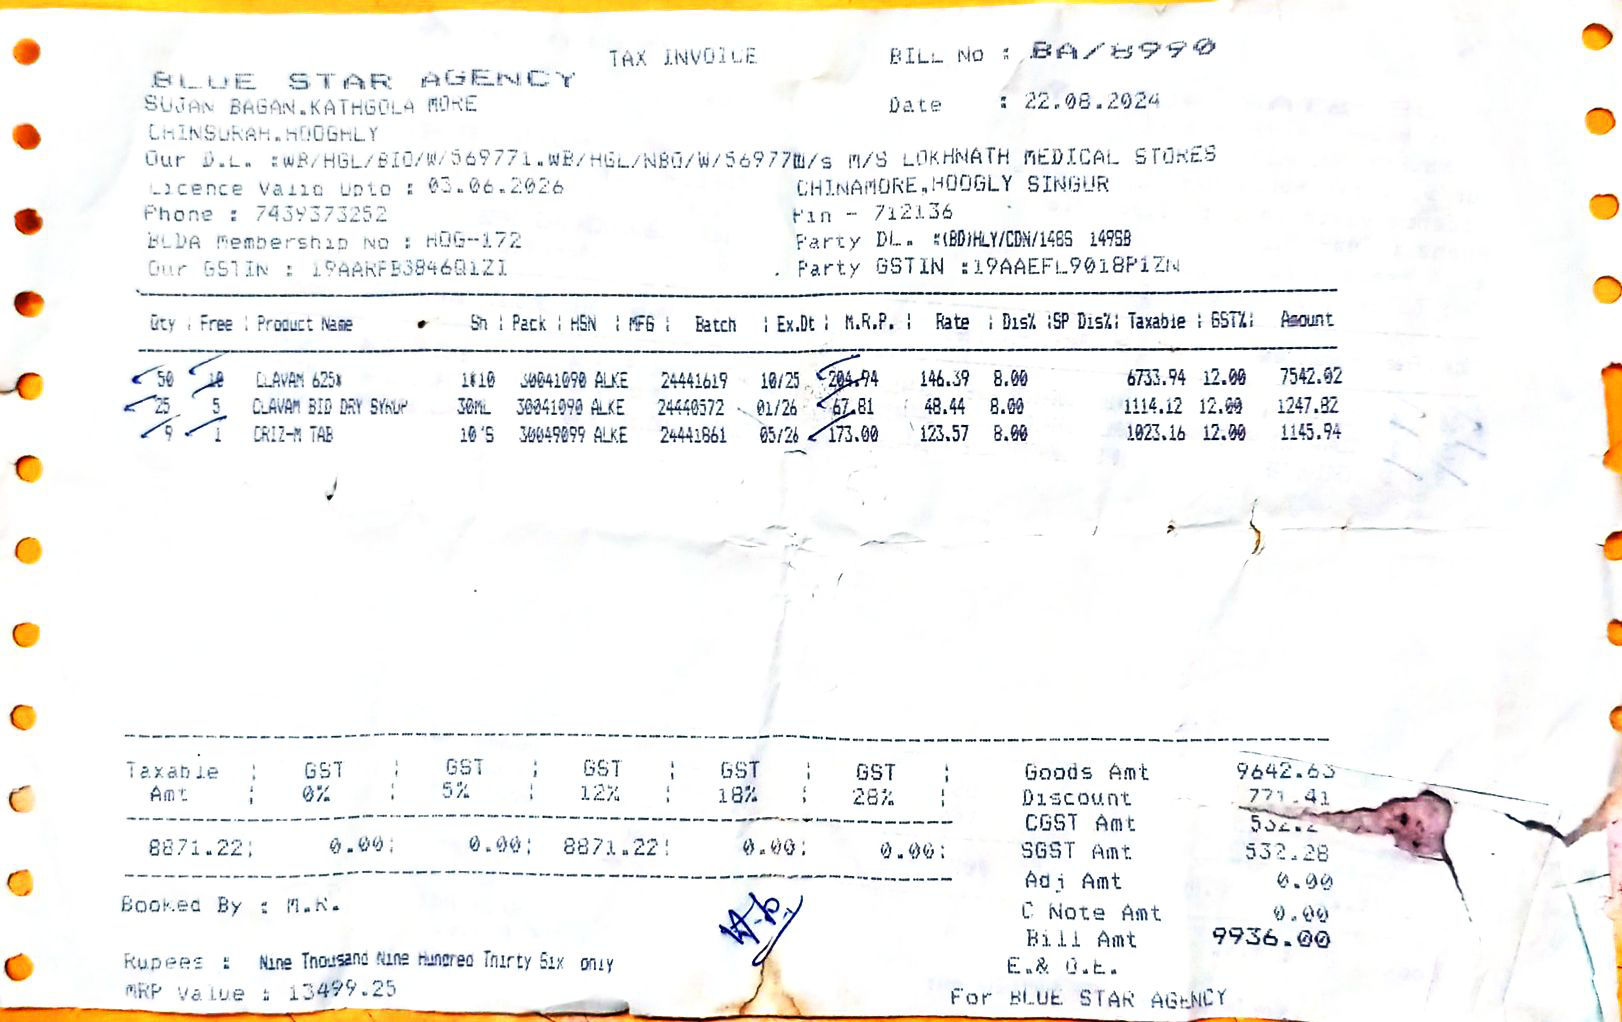 TAX INVOICE
BILL No : BA/8990
BLUE STAR AGENCY
SUJAN BAGAN.KATHGOLA MORE
Date : 22.08.2024
CHINSURAH.HOOGHLY
Our D.L. :WB/HGL/BIO/W/569771.WB/HGL/NBO/W/56977 M/s M/S LOKHNATH MEDICAL STORES
Licence Valid Upto : 03.06.2026 CHINAMORE,HOOGLY SINGUR
Phone : 7439373252 Pin - 712136
BCDA Membership No : HOG-172 Party DL. :(BD)HLY/CDN/148S 149SB
Our GSTIN : 19AARFB3846Q1ZI Party GSTIN :19AAEFL9018P1ZN
Qty | Free | Product Name Sh | Pack | HSN | MFG | Batch | Ex.Dt | M.R.P. | Rate | Dis% |SP Dis%| Taxable | GST%| Amount
50 10 CLAVAM 625* 1*10 30041090 ALKE 24441619 10/25 204.94 146.39 8.00 6733.94 12.00 7542.02
25 5 CLAVAM BID DRY SYRUP 30ML 30041090 ALKE 24440572 01/26 67.81 48.44 8.00 1114.12 12.00 1247.82
9 1 CRIZ-M TAB 10'S 30049099 ALKE 24441861 05/26 173.00 123.57 8.00 1023.16 12.00 1145.94
Taxable | GST | GST | GST | GST | GST | Goods Amt 9642.63
Amt | 0% | 5% | 12% | 18% | 28% | Discount 771.41
CGST Amt
8871.22| 0.00| 0.00| 8871.22| 0.00| 0.00| SGST Amt 532.28
Adj Amt 0.00
Booked By : M.R.
C Note Amt 0.00
Bill Amt 9936.00
Rupees : Nine Thousand Nine Hundred Thirty Six only
E.& O.E.
MRP Value : 13499.25
For BLUE STAR AGENCY